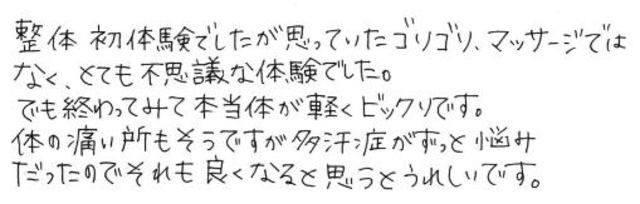 整体 初体験でしたが思っていたゴリゴリ、マッサージでは
なく、とても不思議な体験でした。
でも終わってみて本当体が軽くビックリです。
体の痛い所もそうですが多汗症がずっと悩み
だったのでそれも良くなると思うとうれしいです。